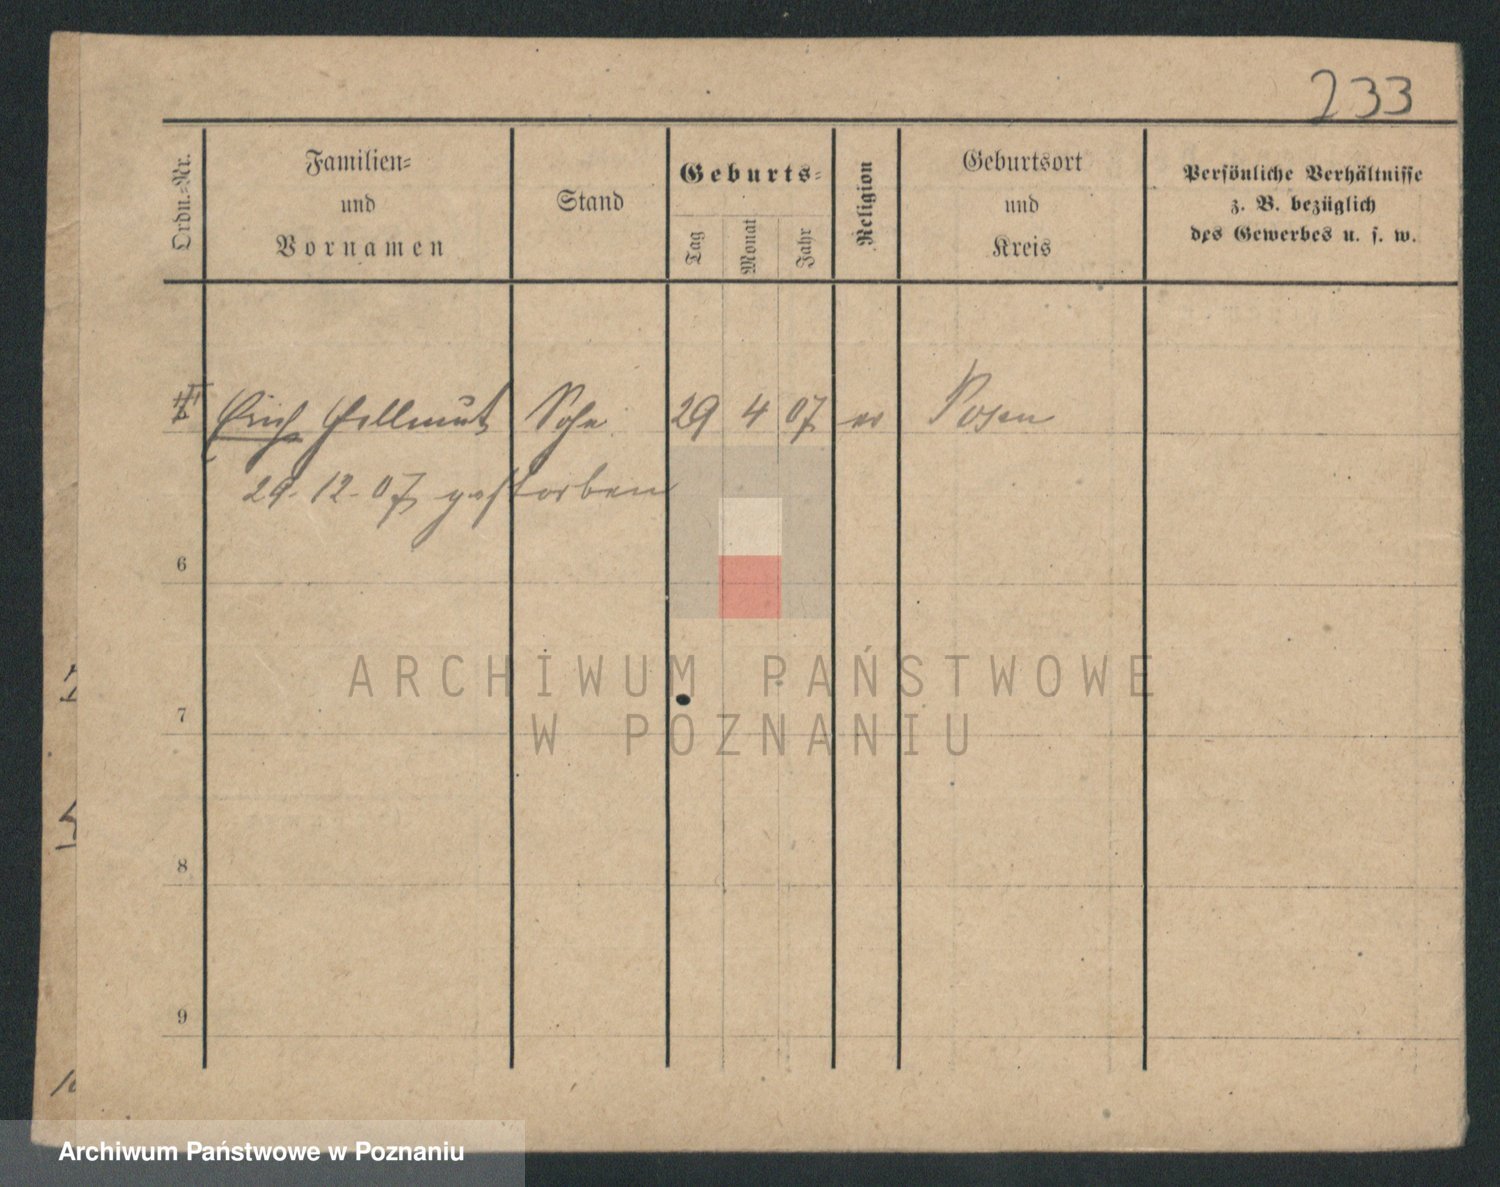 233
Ordn.-Nr.
Familien-
und
Vornamen
Stand
Geburts-
Tag
Monat
Jahr
Religion
Geburtsort
und
Kreis
Persönliche Verhältnisse
z. B. bezüglich
des Gewerbes u. s. w.
Erich Hellmut Sohn 29 4 07 ev Posen
29.12.07 gestorben
6
7
8
9
ARCHIWUM PAŃSTWOWE
W POZNANIU
Archiwum Państwowe w Poznaniu